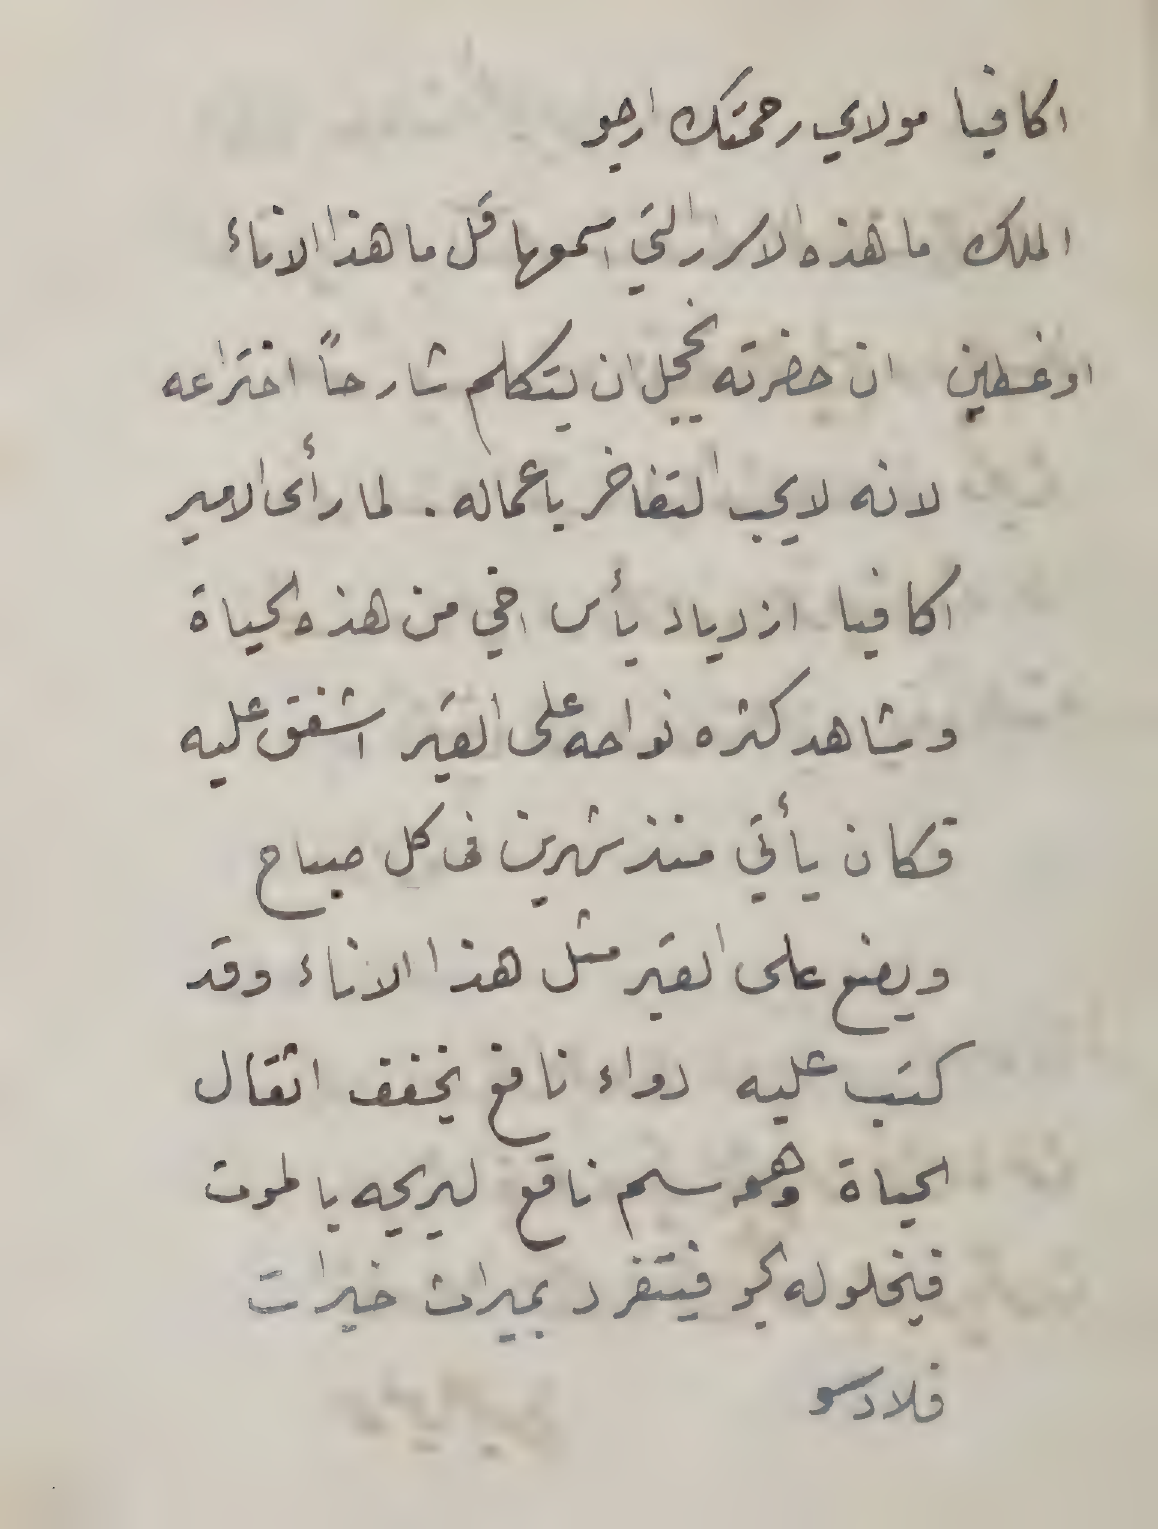 اكافيا مولاي رحمتك ارجو
الملك ما هذه الاسرار التي اسمعها قل ما هذا الاناء
اوغسطين ان حضرته يخجل ان يتكلم شارحاً اختراعه
لانه لا يجب التفاخر باعماله . لما رأى الامير
اكافيا ازدياد يأس اخي من هذه الحياة
وشاهد كثره نواحه على القبر اشفق عليه
فكان يأتي منذ شهرين فى كل صباح
ويضع على القبر مثل هذا الاناء وقد
كتب عليه دواء نافع يخفف اثقال
الحياة وهو سم ناقع ليريحه بالموت
فيخلو له الجو فيتفرد بميراث خيرات
فلادسو